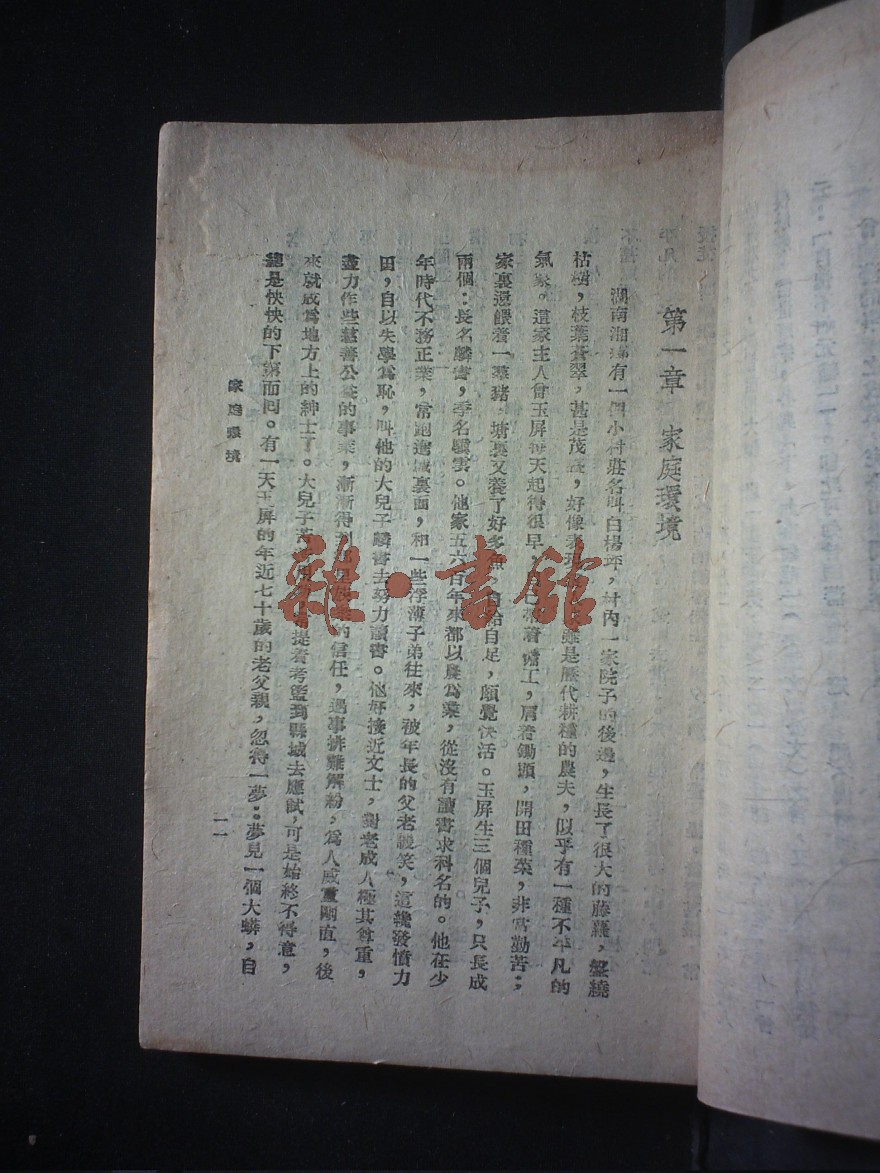 第一章 家庭環境
湖南湘鄉有一個小村莊名叫白楊坪，村內一家院子的後邊，生長了很大的藤蘿，盤繞
枯樹，枝葉蒼翠，甚是茂盛，好像表現 雖是歷代耕種的農夫，似乎有一種不平凡的
氣象。這家主人曾玉屏每天起得很早，自己 着 工，肩着鋤頭，開田種菜，非常勤苦；
家裏還餵着一羣豬，塘裏又養了好多魚，自給自足，頗覺快活。玉屏生三個兒子，只長成
兩個：長名麟書，季名驥雲。他家五六百年來都以農爲業，從沒有讀書求科名的。他在少
年時代不務正業，常跑進城裏面，和一些浮薄子弟往來，被年長的父老譏笑，這纔發憤力
田，自以失學爲恥，叫他的大兒子麟書去努力讀書。他好接近文士，對老成人極其尊重，
盡力作些慈善公益的事業，漸漸得到 的信任，遇事排難解紛，爲人威重剛直，後
來就成爲地方上的紳士了。大兒子 提着考籃到縣城去應試，可是始終不得意，
總是怏怏的下第而回。有一天玉屏的年近七十歲的老父親，忽得一夢：夢見一個大蟒，自
家庭環境
一一
雜·書館